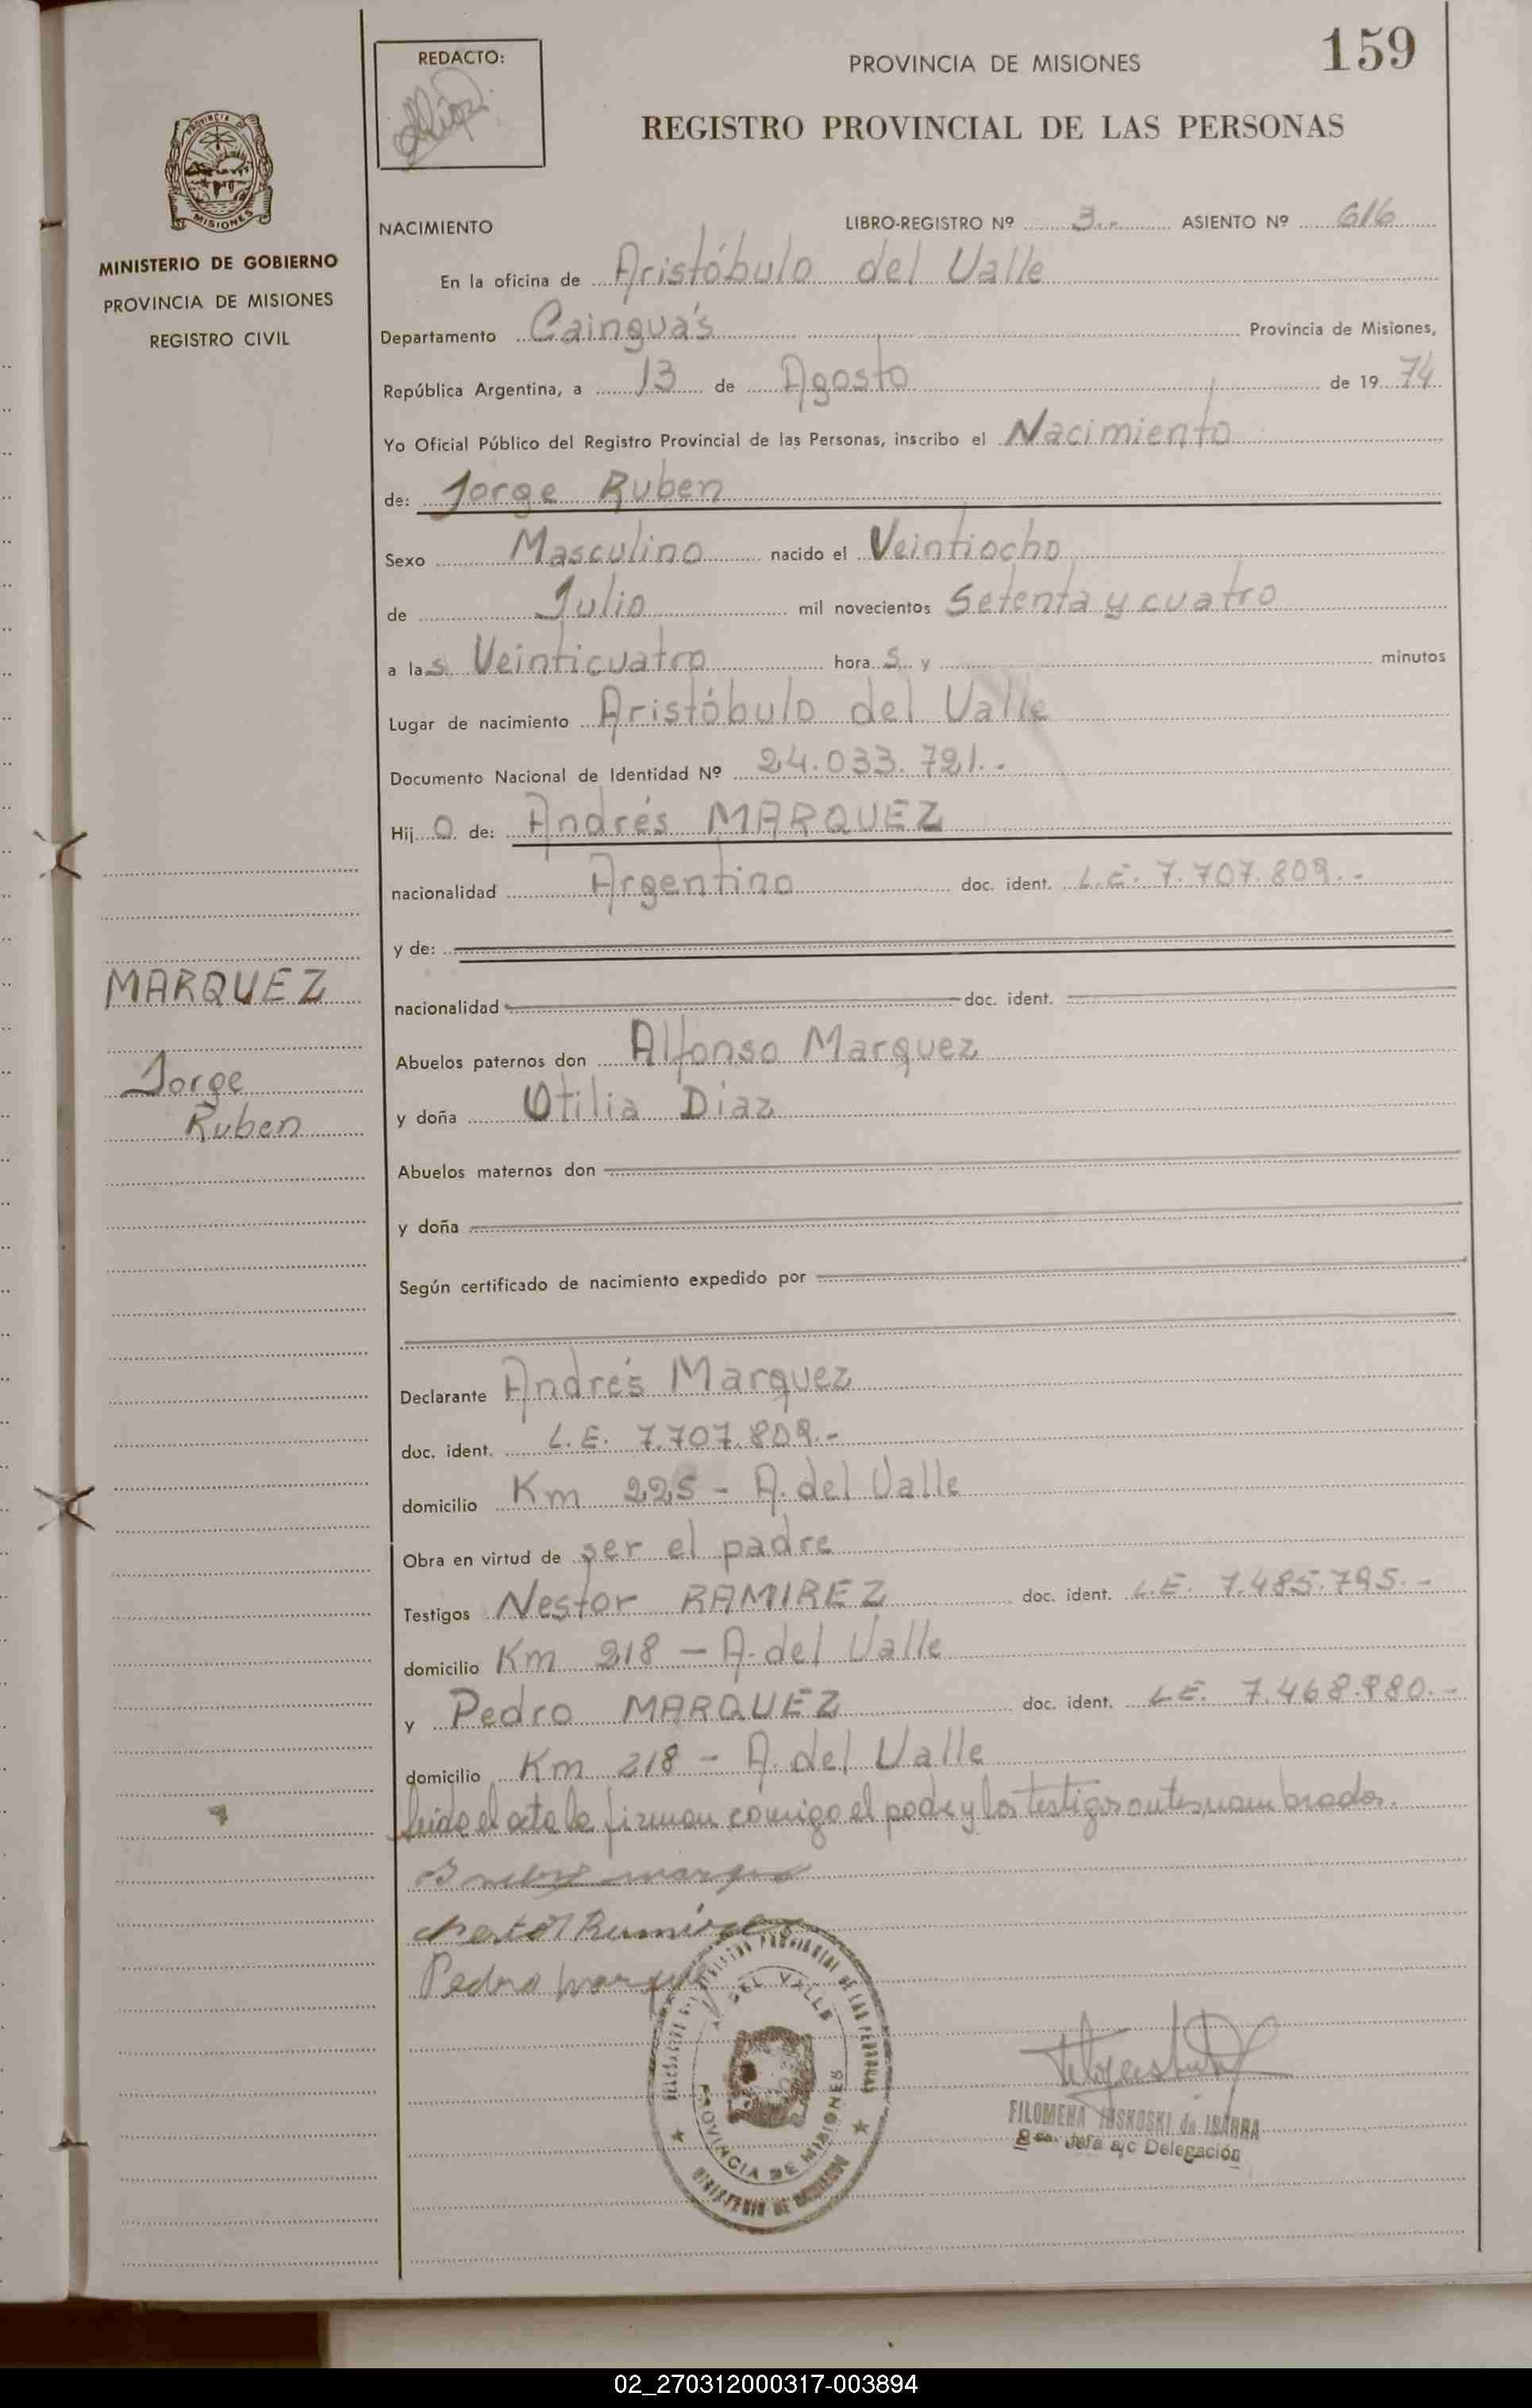 REDACTO:
PROVINCIA DE MISIONES
159
REGISTRO PROVINCIAL DE LAS PERSONAS
PROVINCIA DE
MISIONES
MINISTERIO DE GOBIERNO
PROVINCIA DE MISIONES
REGISTRO CIVIL
NACIMIENTO LIBRO-REGISTRO Nº 3.- ASIENTO Nº 616
En la oficina de Aristóbulo del Valle
Departamento Cainguás Provincia de Misiones,
República Argentina, a 13 de Agosto de 1974
Yo Oficial Público del Registro Provincial de las Personas, inscribo el Nacimiento
de: Jorge Ruben
Sexo Masculino nacido el Veintiocho
de Julio mil novecientos Setenta y cuatro
a las Veinticuatro horas y minutos
Lugar de nacimiento Aristóbulo del Valle
Documento Nacional de Identidad Nº 24.033.721.-
Hijo de: Andrés MARQUEZ
nacionalidad Argentino doc. ident. L.E. 7.707.809.-
y de:
nacionalidad doc. ident.
MARQUEZ
Jorge
Ruben
Abuelos paternos don Alfonso Marquez
y doña Otilia Diaz
Abuelos maternos don
y doña
Según certificado de nacimiento expedido por
Declarante Andrés Marquez
doc. ident. L.E. 7.707.809.-
domicilio Km 225 - A. del Valle
Obra en virtud de ser el padre
Testigos Nestor RAMIREZ doc. ident. L.E. 7.485.795.-
domicilio Km 218 - A. del Valle
y Pedro MARQUEZ doc. ident. L.E. 7.468.980.-
domicilio Km 218 - A. del Valle
leida el acta la firman comigo el padre y los testigos antes nombrados.
Nestor Ramirez
Pedro
REGISTRO PROVINCIAL DE LAS PERSONAS
A. DEL VALLE
PROVINCIA DE MISIONES
MINISTERIO DE GOBIERNO
FILOMENA de IBARRA
Jefa a/c Delegación
02_270312000317-003894